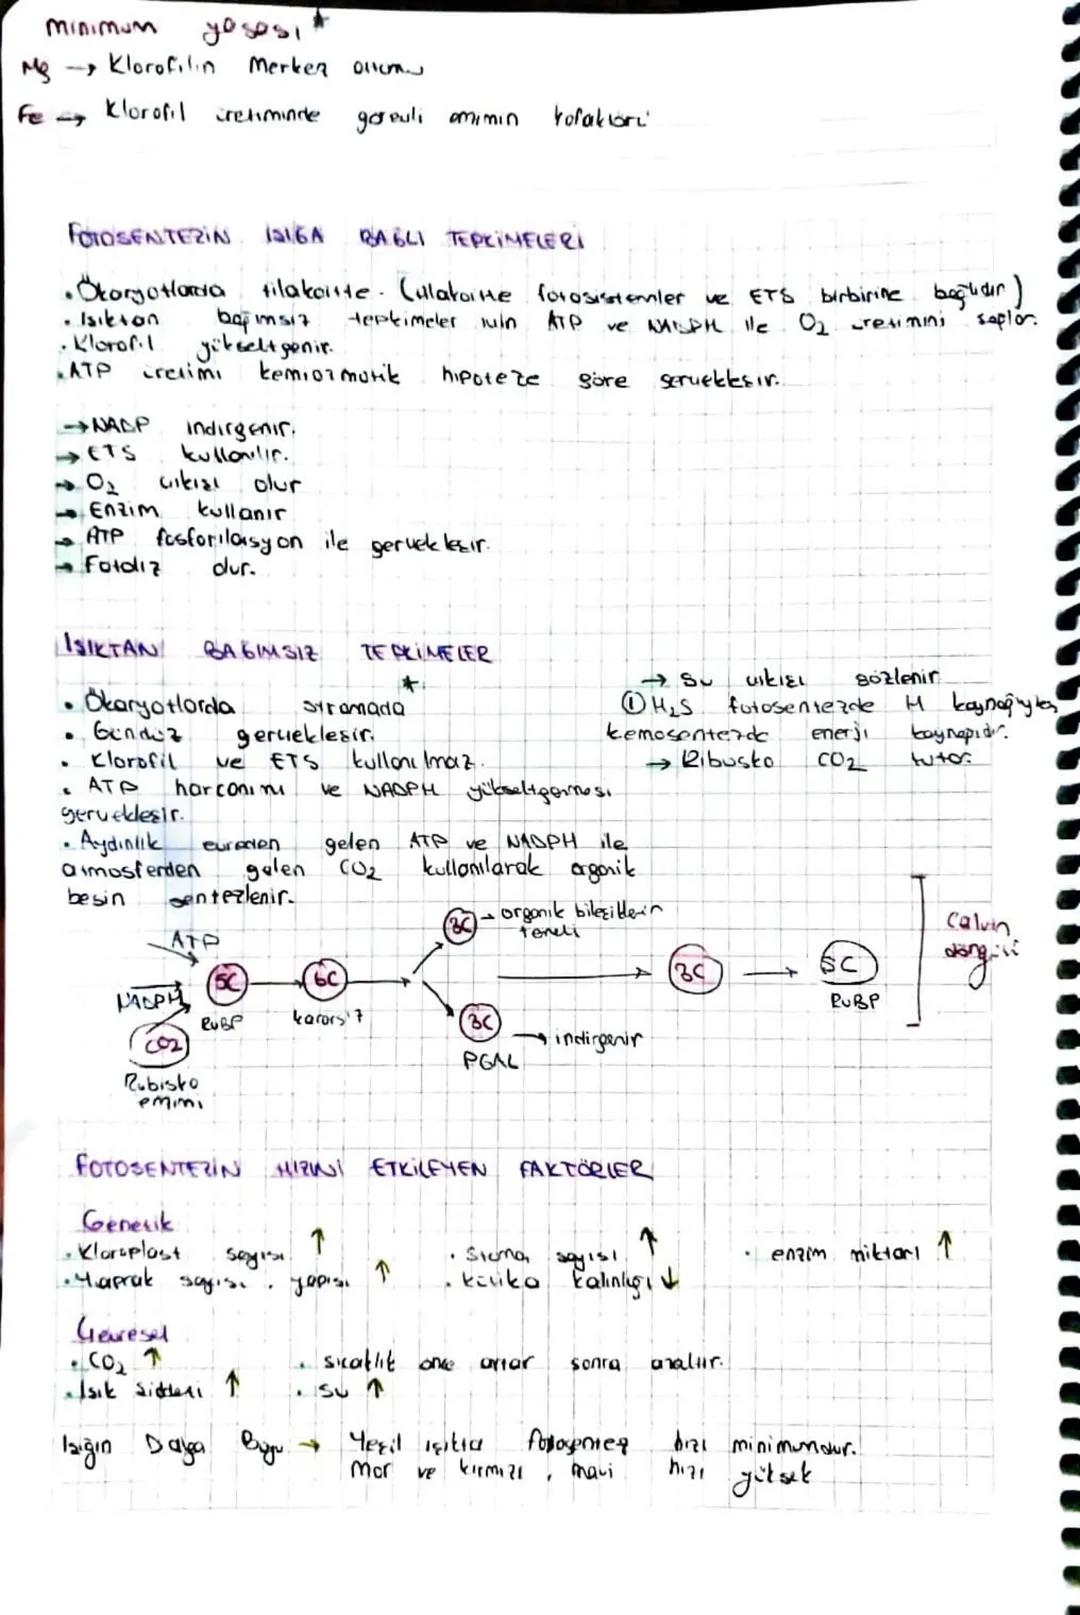 minimum yasası *
Mg → Klorofilin Merkez atomu
Fe → Klorofil üretiminde görevli enzimin kofaktörü
FOTOSENTEZİN IŞIĞA BAĞLI TEPKİMELERİ
• Ökaryotlarda tilakoitte. (tilakoitte fotosistemler ve ETS birbirine bağlıdır)
• Işıktan bağımsız tepkimeler için ATP ve NADPH ile O2 üretimini sağlar.
• Klorofil yükseltgenir.
• ATP üretimi kemiozmotik hipoteze göre gerçekleşir.
→ NADP indirgenir.
→ ETS kullanılır.
→ O2 çıkışı olur
→ Enzim kullanır
→ ATP fosforilasyon ile gerçekleşir.
→ Fotoliz olur.
IŞIKTAN BAĞIMSIZ TEPKİMELER
• Ökaryotlarda stromada *
• Gündüz gerçekleşir.
• Klorofil ve ETS kullanılmaz.
• ATP harcanımı ve NADPH yükseltgenmesi
gerçekleşir.
• Aydınlık evreden gelen ATP ve NADPH ile
atmosferden gelen CO2 kullanılarak organik
besin sentezlenir.
→ Su çıkışı gözlenir
① H2S fotosentezde H kaynağıyken
kemosentezde enerji kaynağıdır.
→ Ribusko CO2 tutar.
ATP
NADPH
CO2
Rubisko
enzimi
5C
RuBP
6C
kararsız
3C → organik bileşiklerin
temeli
3C → indirgenir
PGAL
3C
5C
RuBP
Calvin
döngüsü
FOTOSENTEZİN HIZINI ETKİLEYEN FAKTÖRLER
Genetik
• Kloroplast sayısı ↑
• Stoma sayısı ↑
• enzim miktarı ↑
• Yaprak sayısı, yapısı ↑
• kütiko kalınlığı ↓
Çevresel
• CO2 ↑
• sıcaklık önce artar sonra azalır.
• Işık şiddeti ↑
• su ↑
Işığın Dalga Boyu → Yeşil ışıkta fotosentez hızı minimumdur.
Mor ve kırmızı, mavi hızı yüksek